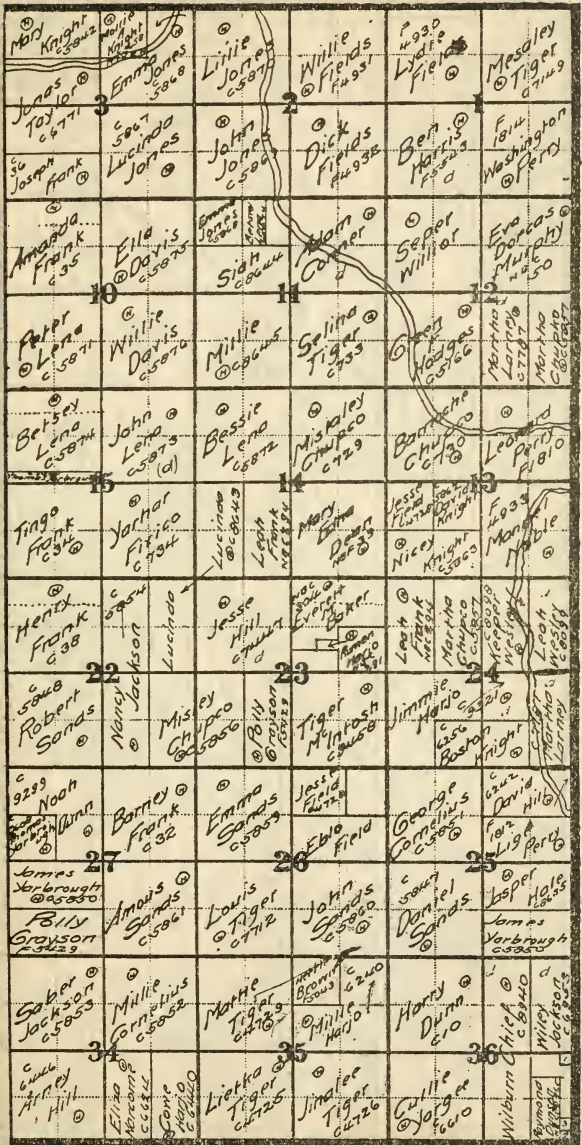 Mary Knight
C5842
Mollie
Knight
Jonas
Taylor
C6771
Emma
Jones
5868
3
Lillie
Jones
C587
Willie
Fields
F4931
F
4930
Lydia
Field
Mesaley
Tiger
C7149
2
1
C
36
Joseph Frank
C
5867
Lucinda
Jones
John
Jones
C586
Dick
Fields
F4938
Ben
Harris
F5543
d
F814
Washington
Perry
Amanda
Frank
C35
Ella
Davis
C5875
Emma
Jones
5868
Siah
C8644
Adam
Corner
d
Seper
Willior
Eva
Dorcas
Murphy
NBC
50
10
11
12
Peter
Lena
C5871
Willie
Davis
C5876
Millie
C8645
Selina
Tiger
C733
Green
T.
Hodges
C5766
Martha
Larney
C7787
Martha
Chupko
Betsey
Lena
C5874
John
Lena
C5873
(d)
Bessie
Lena
C5872
Miskaley
Chupco
C729
Barnoche
Chupco
C730
Leonard
Perry
F1810
15
14
13
Tingo
Frank
C34
Yarhar
Fixico
C734
Lucinda
C8643
Leah
Frank
NBC394
Mary
Edna
Dean
NBF39
Jesse
Field
C4728
David
Knight
Nicey Knight
C5863
F
4933
Mandy
Noble
Henry
Frank
C38
C
5854
Nancy Jackson
Lucinda
Jesse
Hill
C7447
d
NBC
Everett
Baker
Ramen
Harjo
Leah
Frank
NBC394
Martha
Chupco
C5857
Keeper
Wesley
C8098
Leah
Wesley
C8099
22
23
24
C
5848
Robert
Sands
Misley
Chupco
C5856
Polly
Grayson
F5429
Tiger
McIntosh
C9458
Jimmie
Harjo
C
9521
6256
Boston
Knight
Martha
Larney
C
9299
Noah
Dunn
Thomas
Yarbrough
Barney
Frank
C32
Emma
Sands
C5859
Jesse
Field
C4728
Eblo Field
George
Cornelius
C5851
C
6262
David
Hill
F1812
Lige Perry
27
26
25
James
Yarbrough
C5850
Polly
Grayson
F5429
Amous
Sands
C5861
Louis
Tiger
C7712
John
Sands
C5860
C
5847
Daniel
Sands
Jasper Hale
C8635
James
Yarbrough
C5850
Saber
Jackson
C5853
Millie
Cornelius
C5852
Mattie
Tiger
C4729
Hettie
Brown
F5043
C
6240
Millie
Harjo
Harry
Dunn
C10
Wilburn Chief
C8940
d
Wiley
Jackson
34
35
36
C
6446
Arney
Hill
Eliza
Narcome
C6624
Come
Harjo
C6440
Lietka
Tiger
C4725
Jinalee
Tiger
C4726
Cullie
Yargee
C6610
Raymond